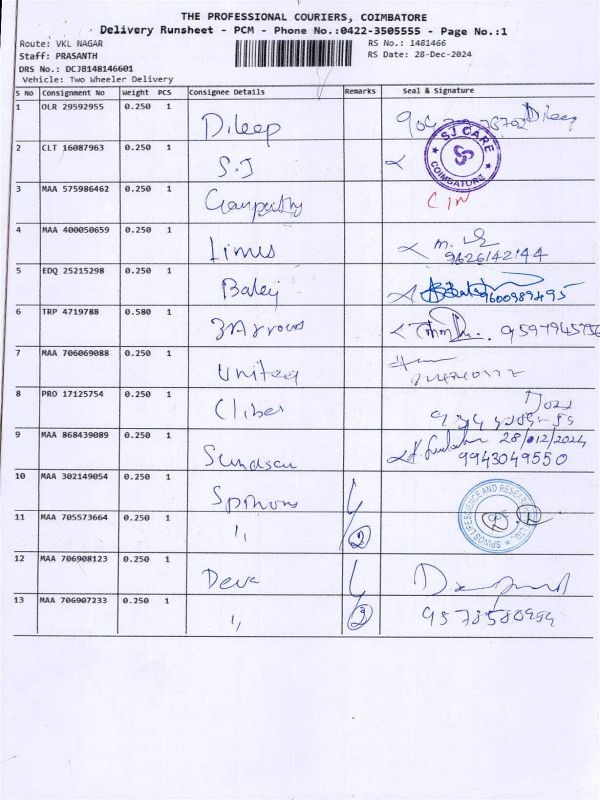 THE PROFESSIONAL COURIERS, COIMBATORE
Delivery Runsheet - PCM - Phone No.:0422-3505555 - Page No.:1
Route: VKL NAGAR
RS No.: 1481466
Staff: PRASANTH
RS Date: 28-Dec-2024
DRS No.: DCJB148146601
Vehicle: Two Wheeler Delivery
S No Consignment No Weight PCS Consignee Details Remarks Seal & Signature
1 OLR 29592955 0.250 1 Dileep Dileep
2 CLT 16087963 0.250 1 S.J SJ CARE COIMBATORE
3 MAA 575986462 0.250 1
4 MAA 400050659 0.250 1 Linus 9626142144
5 EDQ 25215298 0.250 1 Balaji 9600989495
6 TRP 4719788 0.580 1 3Arrows
7 MAA 706069088 0.250 1 United
8 PRO 17125754 0.250 1
9 MAA 868439089 0.250 1 28/012/2024
9943049550
10 MAA 302149054 0.250 1
11 MAA 705573664 0.250 1 " 2
12 MAA 706908123 0.250 1 Deva
13 MAA 706907233 0.250 1 " 2